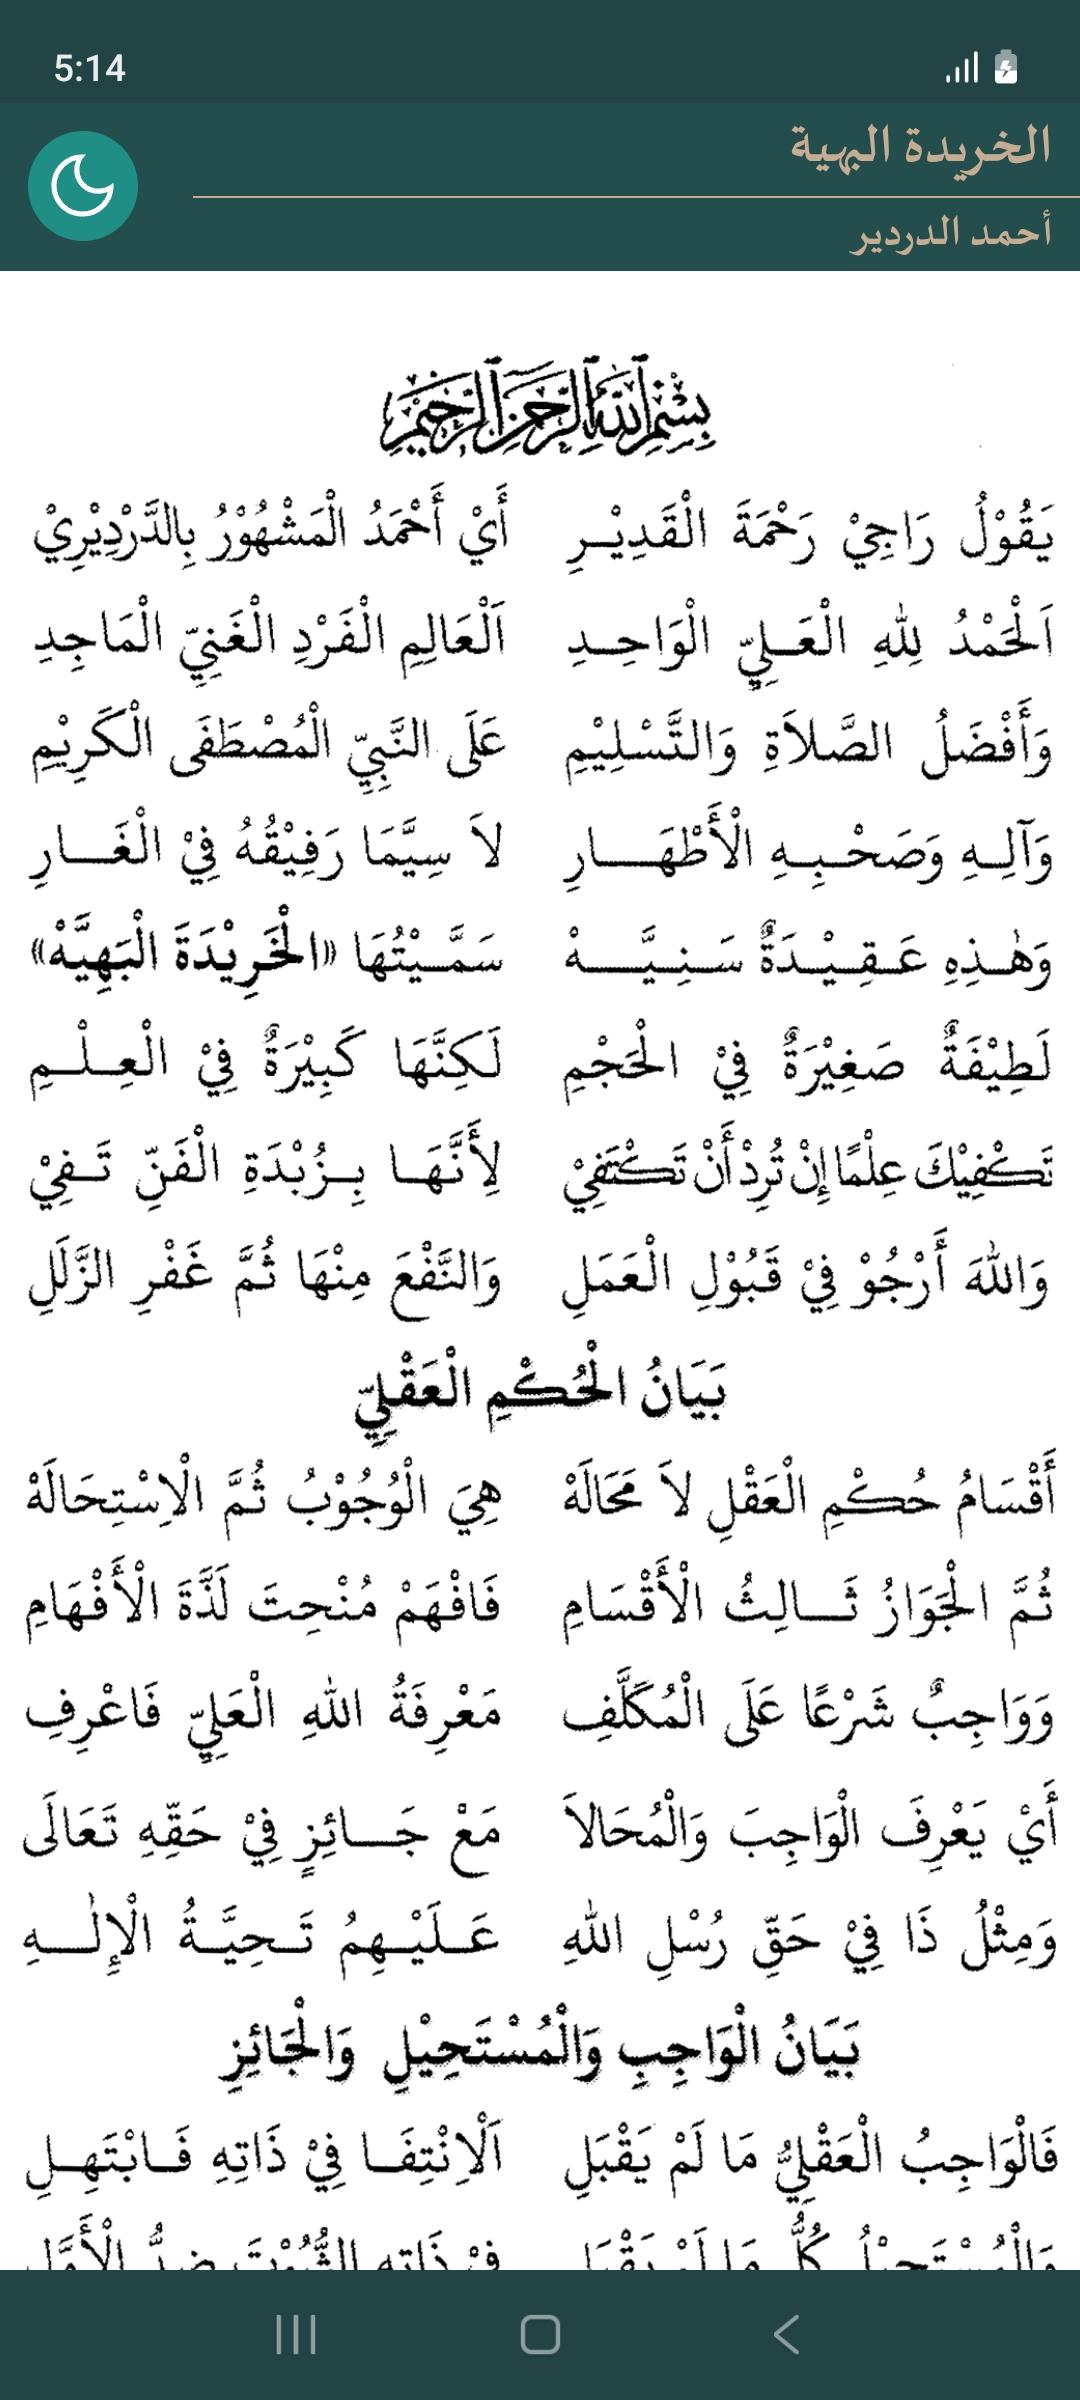 5:14
الخريدة البهية
أحمد الدردير
بِسْمِ اللَّهِ الرَّحْمَنِ الرَّحِيمِ
يَقُوْلُ رَاجِيْ رَحْمَةَ الْقَدِيْـرِ أَيْ أَحْمَدُ الْمَشْهُوْرُ بِالدَّرْدِيْرِيْ
اَلْحَمْدُ لِلّٰهِ الْعَـلِيِّ الْوَاحِـدِ اَلْعَالِمِ الْفَرْدِ الْغَنِيِّ الْمَاجِدِ
وَأَفْضَلُ الصَّلاَةِ وَالتَّسْلِيْمِ عَلَى النَّبِيِّ الْمُصْطَفَى الْكَرِيْمِ
وَآلِـهِ وَصَحْـبِـهِ الْأَطْهَـــارِ لاَ سِيَّمَا رَفِيْقُهُ فِيْ الْغَـــارِ
وَهٰـذِهِ عَـقِـيْـدَةٌ سَـنِـيَّــــهْ سَمَّـيْتُهَا «الْخَرِيْدَةَ الْبَهِيَّهْ»
لَطِيْفَةٌ صَغِيْرَةٌ فِيْ الْحَجْمِ لَكِنَّهَا كَبِيْرَةٌ فِيْ الْعِـلْـمِ
تَكْفِيْكَ عِلْمًا إِنْ تُرِدْ أَنْ تَكْتَفِيْ لِأَنَّهَـا بِـزُبْدَةِ الْفَنِّ تَـفِيْ
وَاللّٰهَ أَرْجُوْ فِيْ قَبُوْلِ الْعَمَلِ وَالنَّفْعَ مِنْهَا ثُمَّ غَفْرِ الزَّلَلِ
بَيَانُ الْحُكْمِ الْعَقْلِيِّ
أَقْسَامُ حُكْمِ الْعَقْلِ لاَ مَحَالَهْ هِيَ الْوُجُوْبُ ثُمَّ الْاِسْتِحَالَهْ
ثُمَّ الْجَوَازُ ثَـــالِثُ الْأَقْسَامِ فَافْهَمْ مُنْحِتَ لَذَّةَ الْأَفْهَامِ
وَوَاجِبٌ شَرْعًا عَلَى الْمُكَلَّفِ مَعْرِفَةُ اللّٰهِ الْعَلِيِّ فَاعْرِفِ
أَيْ يَعْرِفَ الْوَاجِبَ وَالْمُحَالاَ مَعْ جَـــائِزٍ فِيْ حَقِّهِ تَعَالَى
وَمِثْلُ ذَا فِيْ حَقِّ رُسْلِ اللّٰهِ عَـلَـيْـهِمُ تَـحِيَّـةُ الْإِلٰـــهِ
بَيَانُ الْوَاجِبِ وَالْمُسْتَحِيْلِ وَالْجَائِزِ
فَالْوَاجِبُ الْعَقْلِيُّ مَا لَمْ يَقْبَلِ اَلْاِنْتِفَـا فِيْ ذَاتِهِ فَـابْتَهِـلِ
وَالْمُسْتَحِيْلُ كُلُّ مَا لَمْ يَقْبَلِ فِيْ ذَاتِهِ الثُّبُوْتَ ضِدُّ الْأَوَّلِ